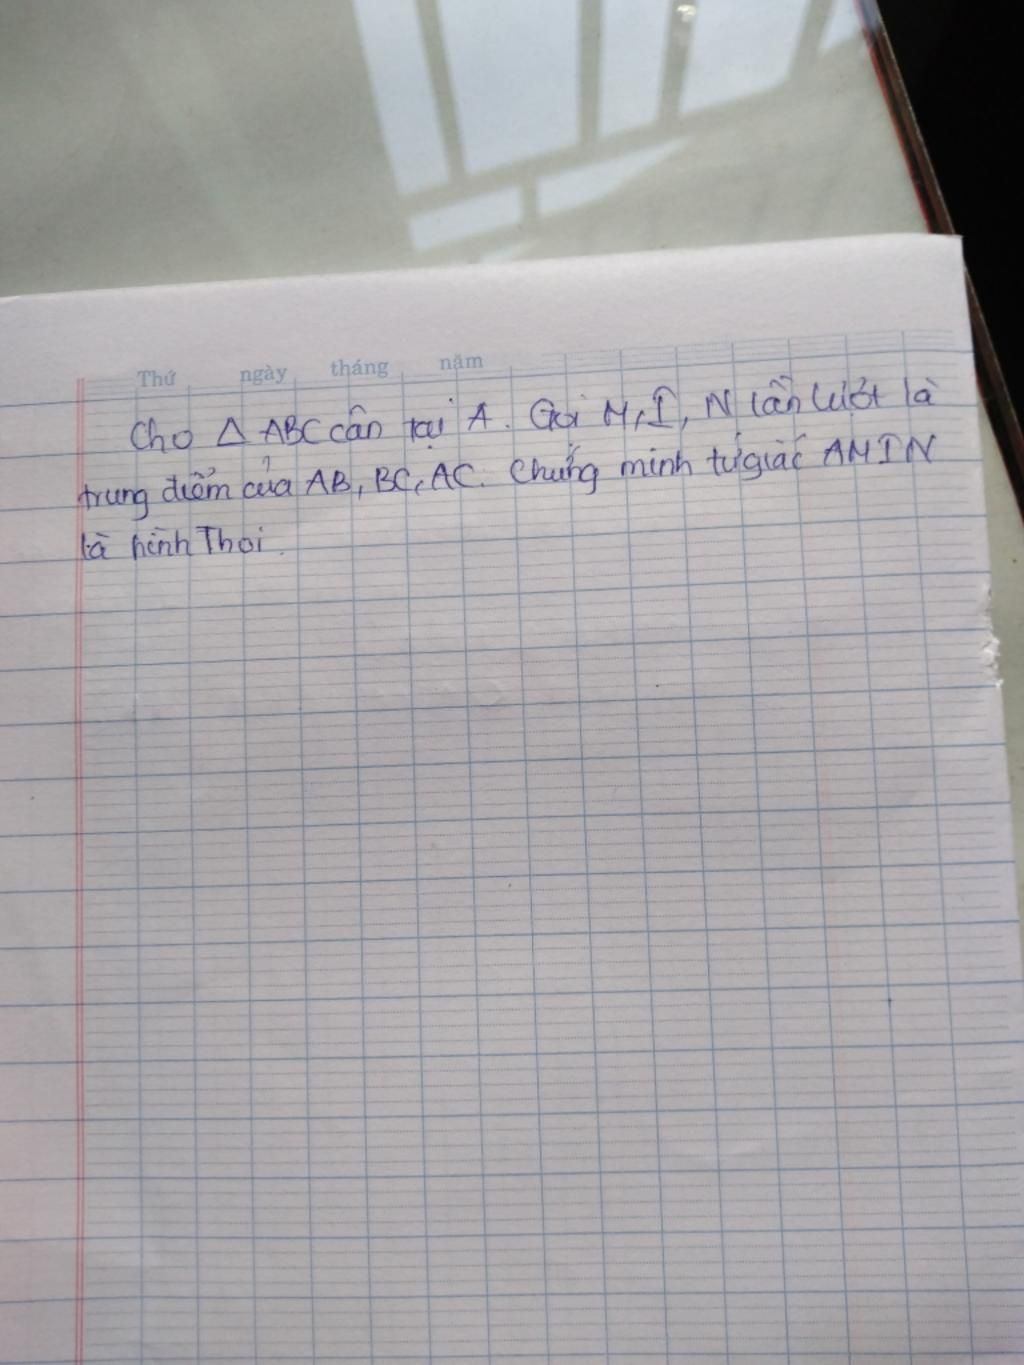 Thứ ngày tháng năm
Cho Δ ABC cân tại A. Gọi M, I, N lần lượt là
trung điểm của AB, BC, AC. Chứng minh tứ giác AMIN
là hình Thoi.